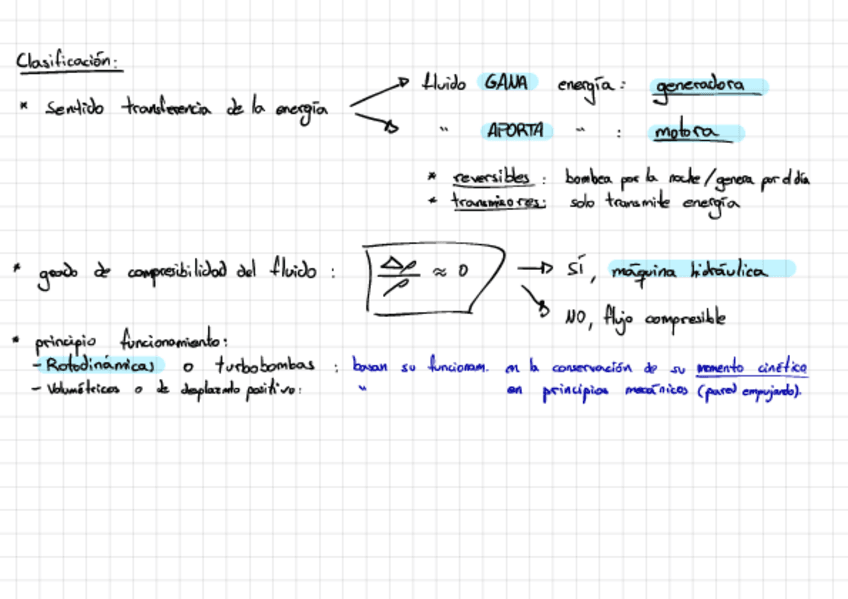 Clasificación:
* Sentido transferencia de la energía → fluido GANA energía: generadora
→ " APORTA " : motora
* reversibles: bombea por la noche/genera por el día
* transmisores: solo transmite energía
* grado de compresibilidad del fluido: Δρ/ρ ≈ 0 → SÍ, máquina hidráulica
→ NO, flujo compresible
* principio funcionamiento:
- Rotodinámicas o turbobombas : basan su funcionam. en la conservación de su momento cinético
- Volumétricos o de desplazmto positivo: " en principios mecánicos (pared empujando).